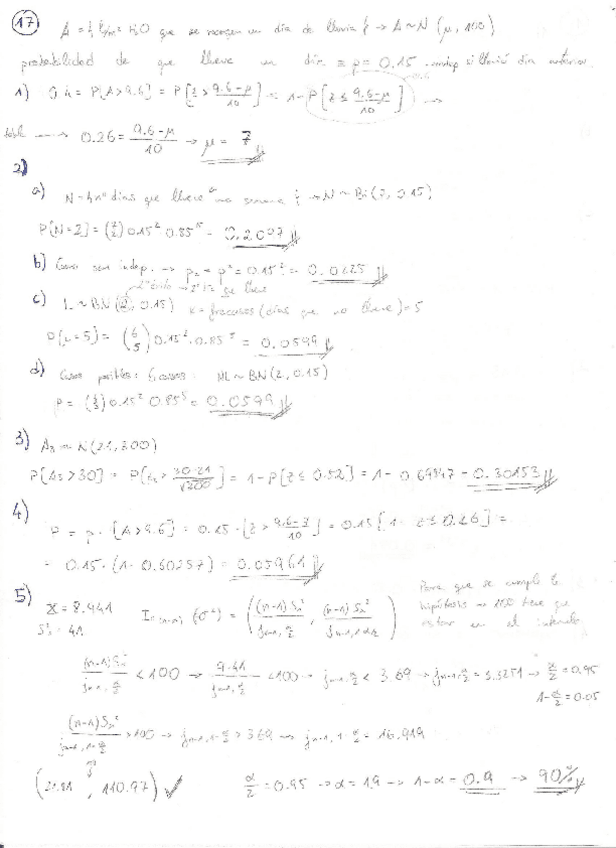 17) A = { l/m² H₂O que se recogen un día de lluvia } → A ~ N (μ, 100)
probabilidad de que llueva un día = p = 0.15 . indep si llovió día anterior.
1) 0.4 = P[A > 9.6] = P[z > (9.6-μ)/10] = 1 - P[z ≤ (9.6-μ)/10] →
→ 0.26 = (9.6-μ)/10 → μ = 7
2)
a) N = { nº días que llueve una semana } → N ~ Bi (7, 0.15)
P[N=2] = (7 2) 0.15² 0.85⁵ = 0.2097
b) Como son indep. → p₂ = p² = 0.15² = 0.0225
2º éxito → 2º día que llueve
c) L ~ BN (2, 0.15) x = fracasos (días que no llueve) = 5
P[x=5] = (6 5) 0.15² · 0.85⁵ = 0.0599
d) Casos posibles: 6 casos. ~ BN (2, 0.15)
0.15² 0.85⁵ = 0.0599
3) A₃ ~ N (21, 300)
P[A₃ > 30] = P[z > (30-21)/√300] = 1 - P[z ≤ 0.52] = 1 - 0.69847 = 0.30153
4) P = p · [A > 9.6] = 0.15 · [z > (9.6-7)/10] = 0.15 [1 - z ≤ 0.26] =
= 0.15 · (1 - 0.60257) = 0.05961
5) X = 8.441
S² = 41
(σ²) = ( (n-1) S²/ , (n-1) S²/ )
Para que se cumpla la
hipótesis → 100 tiene que
estar en el intervalo
(n-1) S²/ < 100 → 9·41/ < 100 → < 3.69 → = 3.3251 → α/2 = 0.95
1 - α/2 = 0.05
(n-1) S²/ > 100 → > 3.69 → = 16.919
(21.81 , 110.97) ✓ α/2 = 0.95 → α = 1.9 → 1 - α = 0.9 → 90%